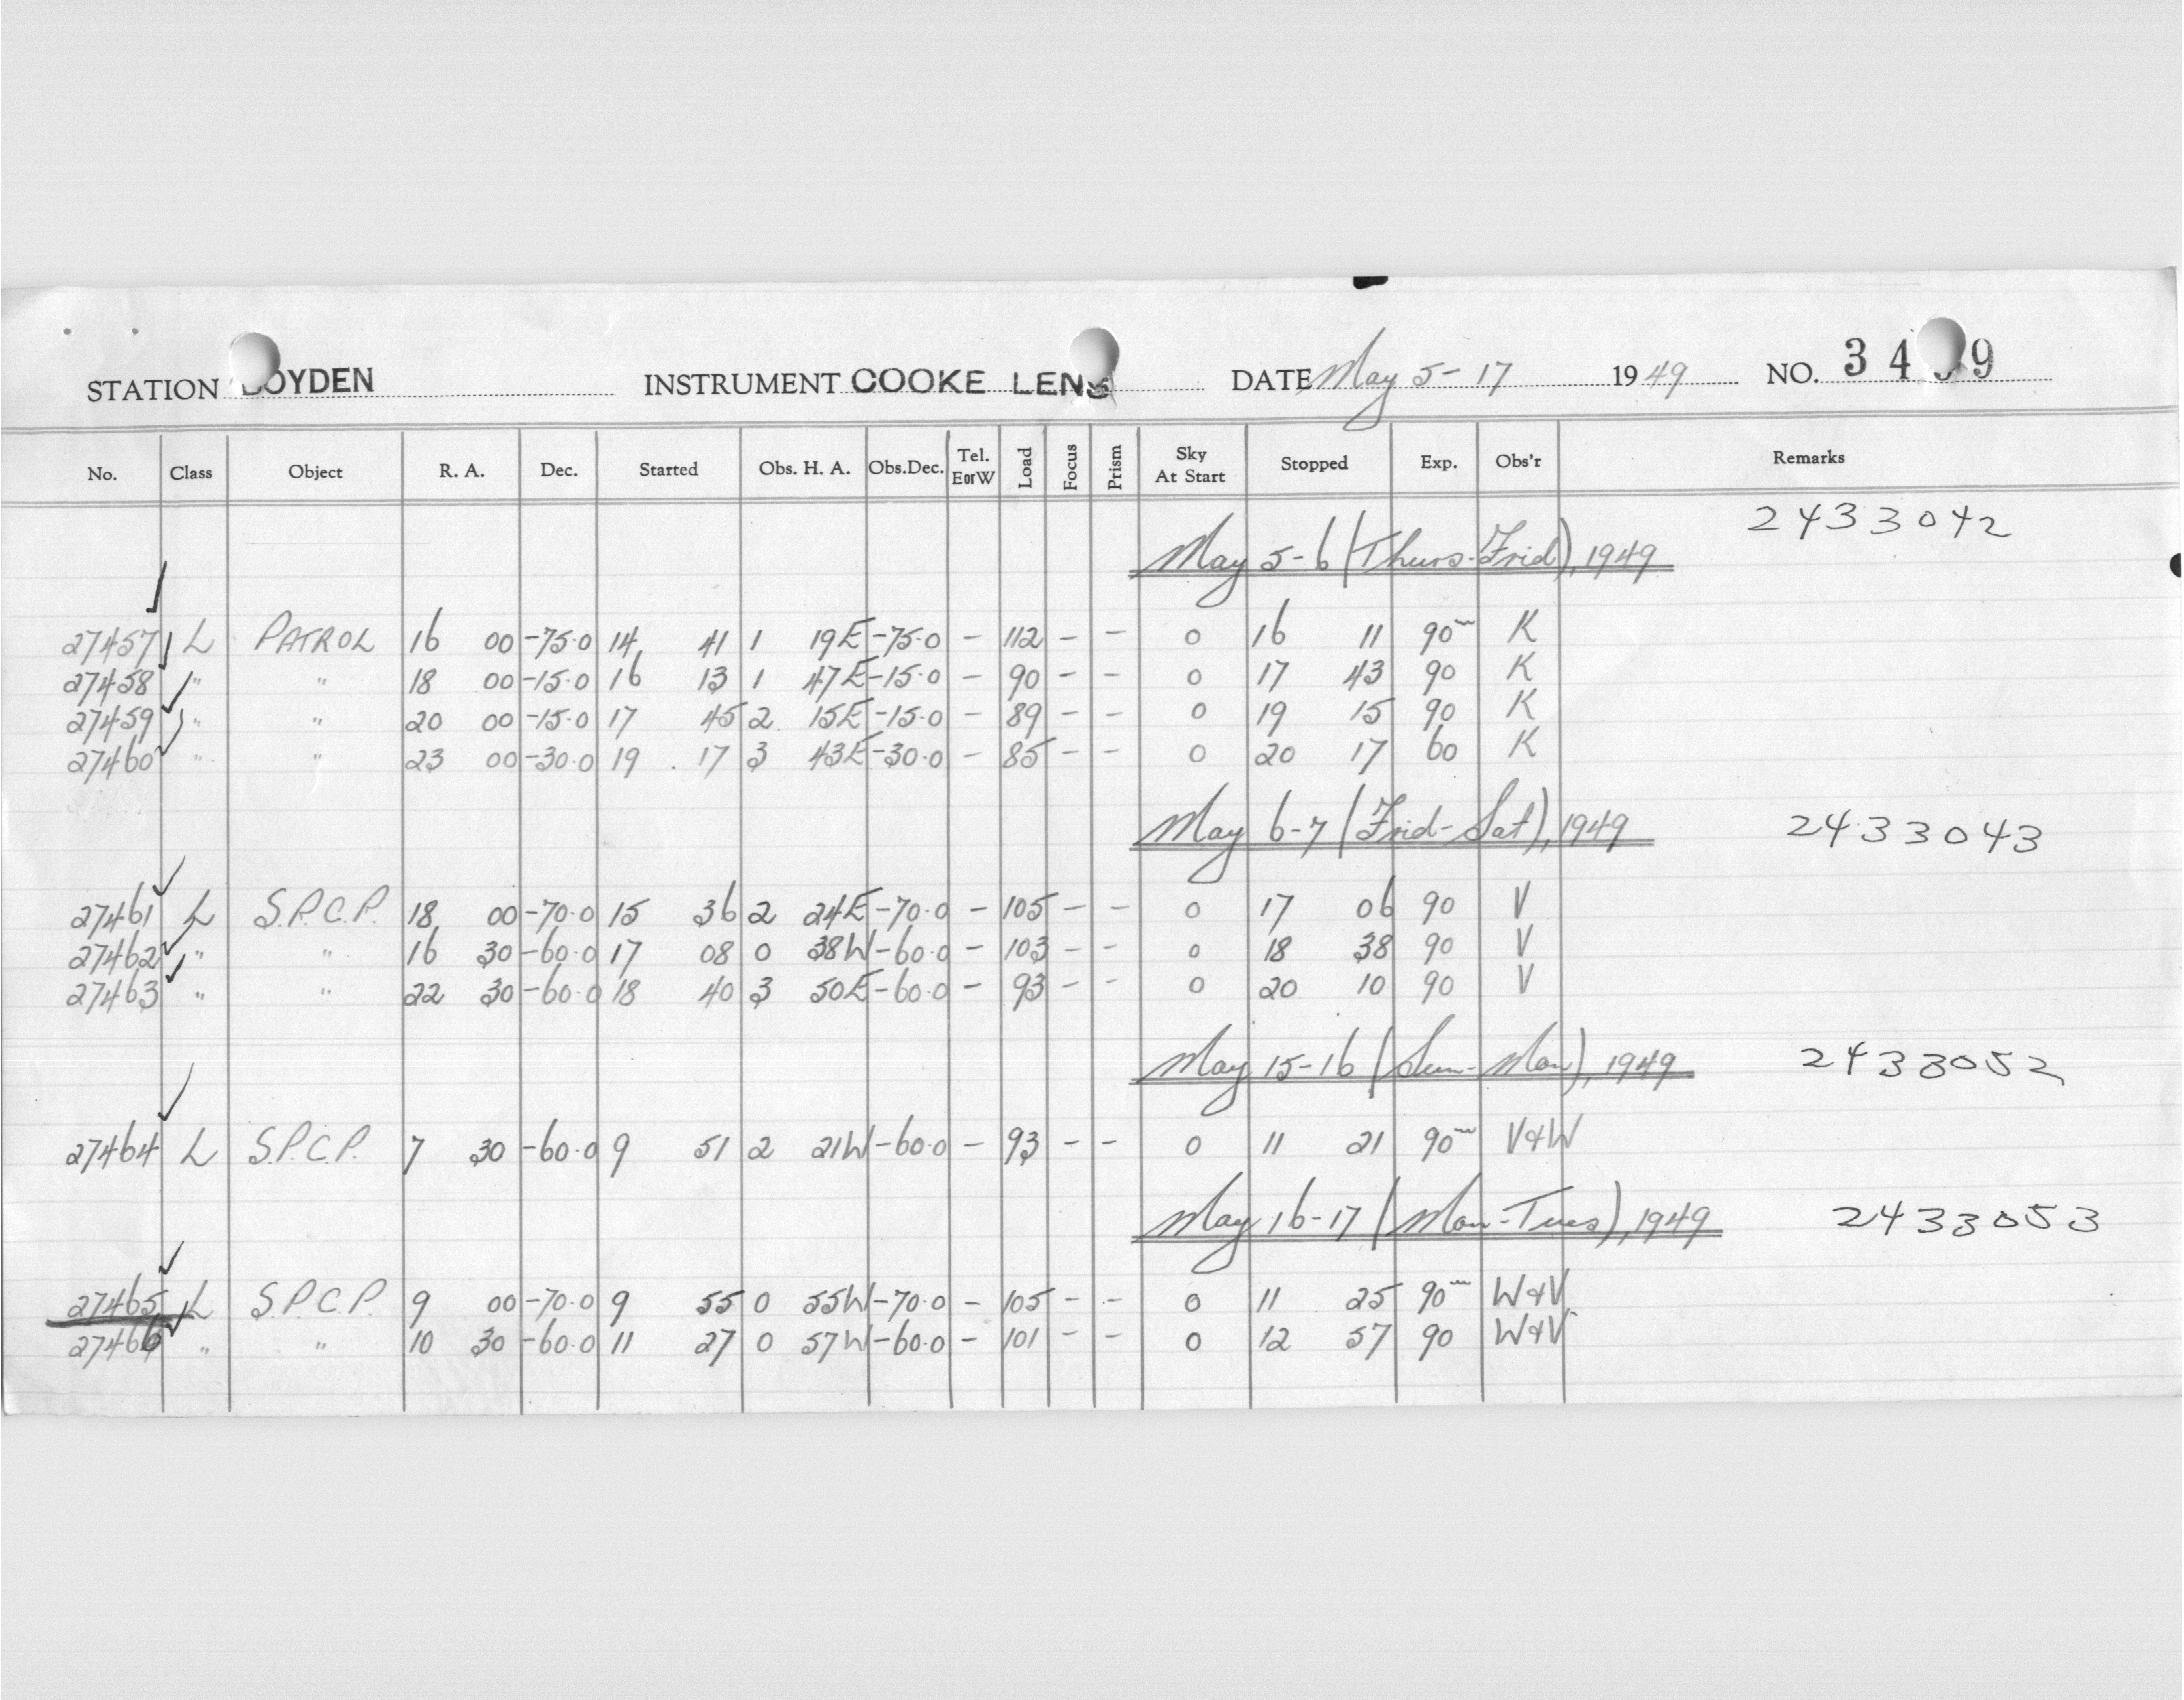 STATION BOYDEN INSTRUMENT COOKE LENS DATE May 5-17 1949 NO. 34 9
No. Class Object R. A. Dec. Started Obs. H. A. Obs.Dec. Tel. EorW Load Focus Prism Sky At Start Stopped Exp. Obs'r Remarks
May 5-6 (Thurs-Frid), 1949 2433042
27457 L PATROL 16 00 -75.0 14 41 1 19E -75.0 - 112 - - 0 16 11 90m K
27458 " " 18 00 -15.0 16 13 1 47E -15.0 - 90 - - 0 17 43 90 K
27459 " " 20 00 -15.0 17 45 2 15E -15.0 - 89 - - 0 19 15 90 K
27460 " " 23 00 -30.0 19 17 3 43E -30.0 - 85 - - 0 20 17 60 K
May 6-7 (Frid-Sat), 1949 2433043
27461 L S.P.C.P. 18 00 -70.0 15 36 2 24E -70.0 - 105 - - 0 17 06 90 V
27462 " " 16 30 -60.0 17 08 0 38W -60.0 - 103 - - 0 18 38 90 V
27463 " " 22 30 -60.0 18 40 3 50E -60.0 - 93 - - 0 20 10 90 V
May 15-16 (Sun-Mon), 1949 2433052
27464 L S.P.C.P. 7 30 -60.0 9 51 2 21W -60.0 - 93 - - 0 11 21 90m V+W
May 16-17 (Mon-Tues), 1949 2433053
27465 L S.P.C.P. 9 00 -70.0 9 55 0 55W -70.0 - 105 - - 0 11 25 90m W+V
27466 " " 10 30 -60.0 11 27 0 57W -60.0 - 101 - - 0 12 57 90 W+V